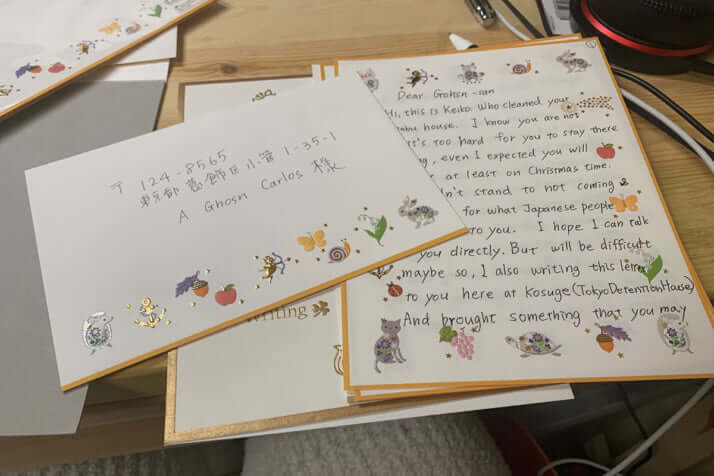 〒 124-8565
東京都 葛飾区 小菅 1-35-1
A Ghosn Carlos 様
writing
①
Dear Grohsn -san
this is Keiko. Who cleaned your
house. I know you are not
too hard for you to stay there
even I expected you will
at least on Christmas time.
stand to not coming
for what Japanese people
to you. I hope I can talk
you directly. But will be difficult
maybe so, I also writing this letter
to you here at Kosuge (Tokyo Detention House)
And brought something that you may